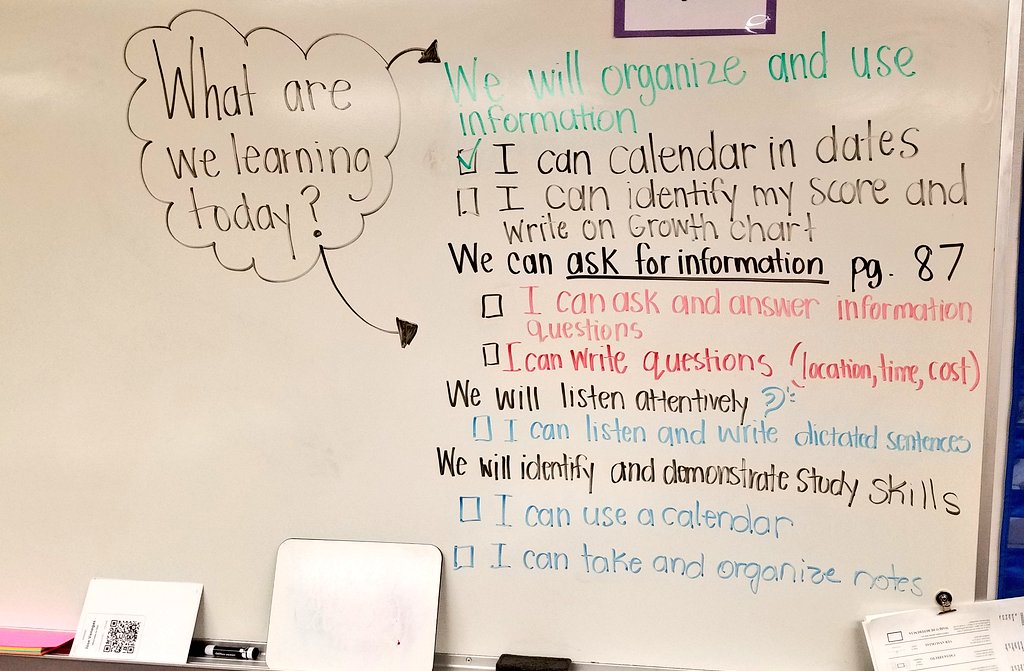 What are
we learning
today?
We will organize and use
information
I can calendar in dates
I can identify my score and
write on Growth chart
We can ask for information pg. 87
I can ask and answer information
questions
I can write questions (location, time, cost)
We will listen attentively
I can listen and write dictated sentences
We will identify and demonstrate study skills
I can use a calendar
I can take and organize notes